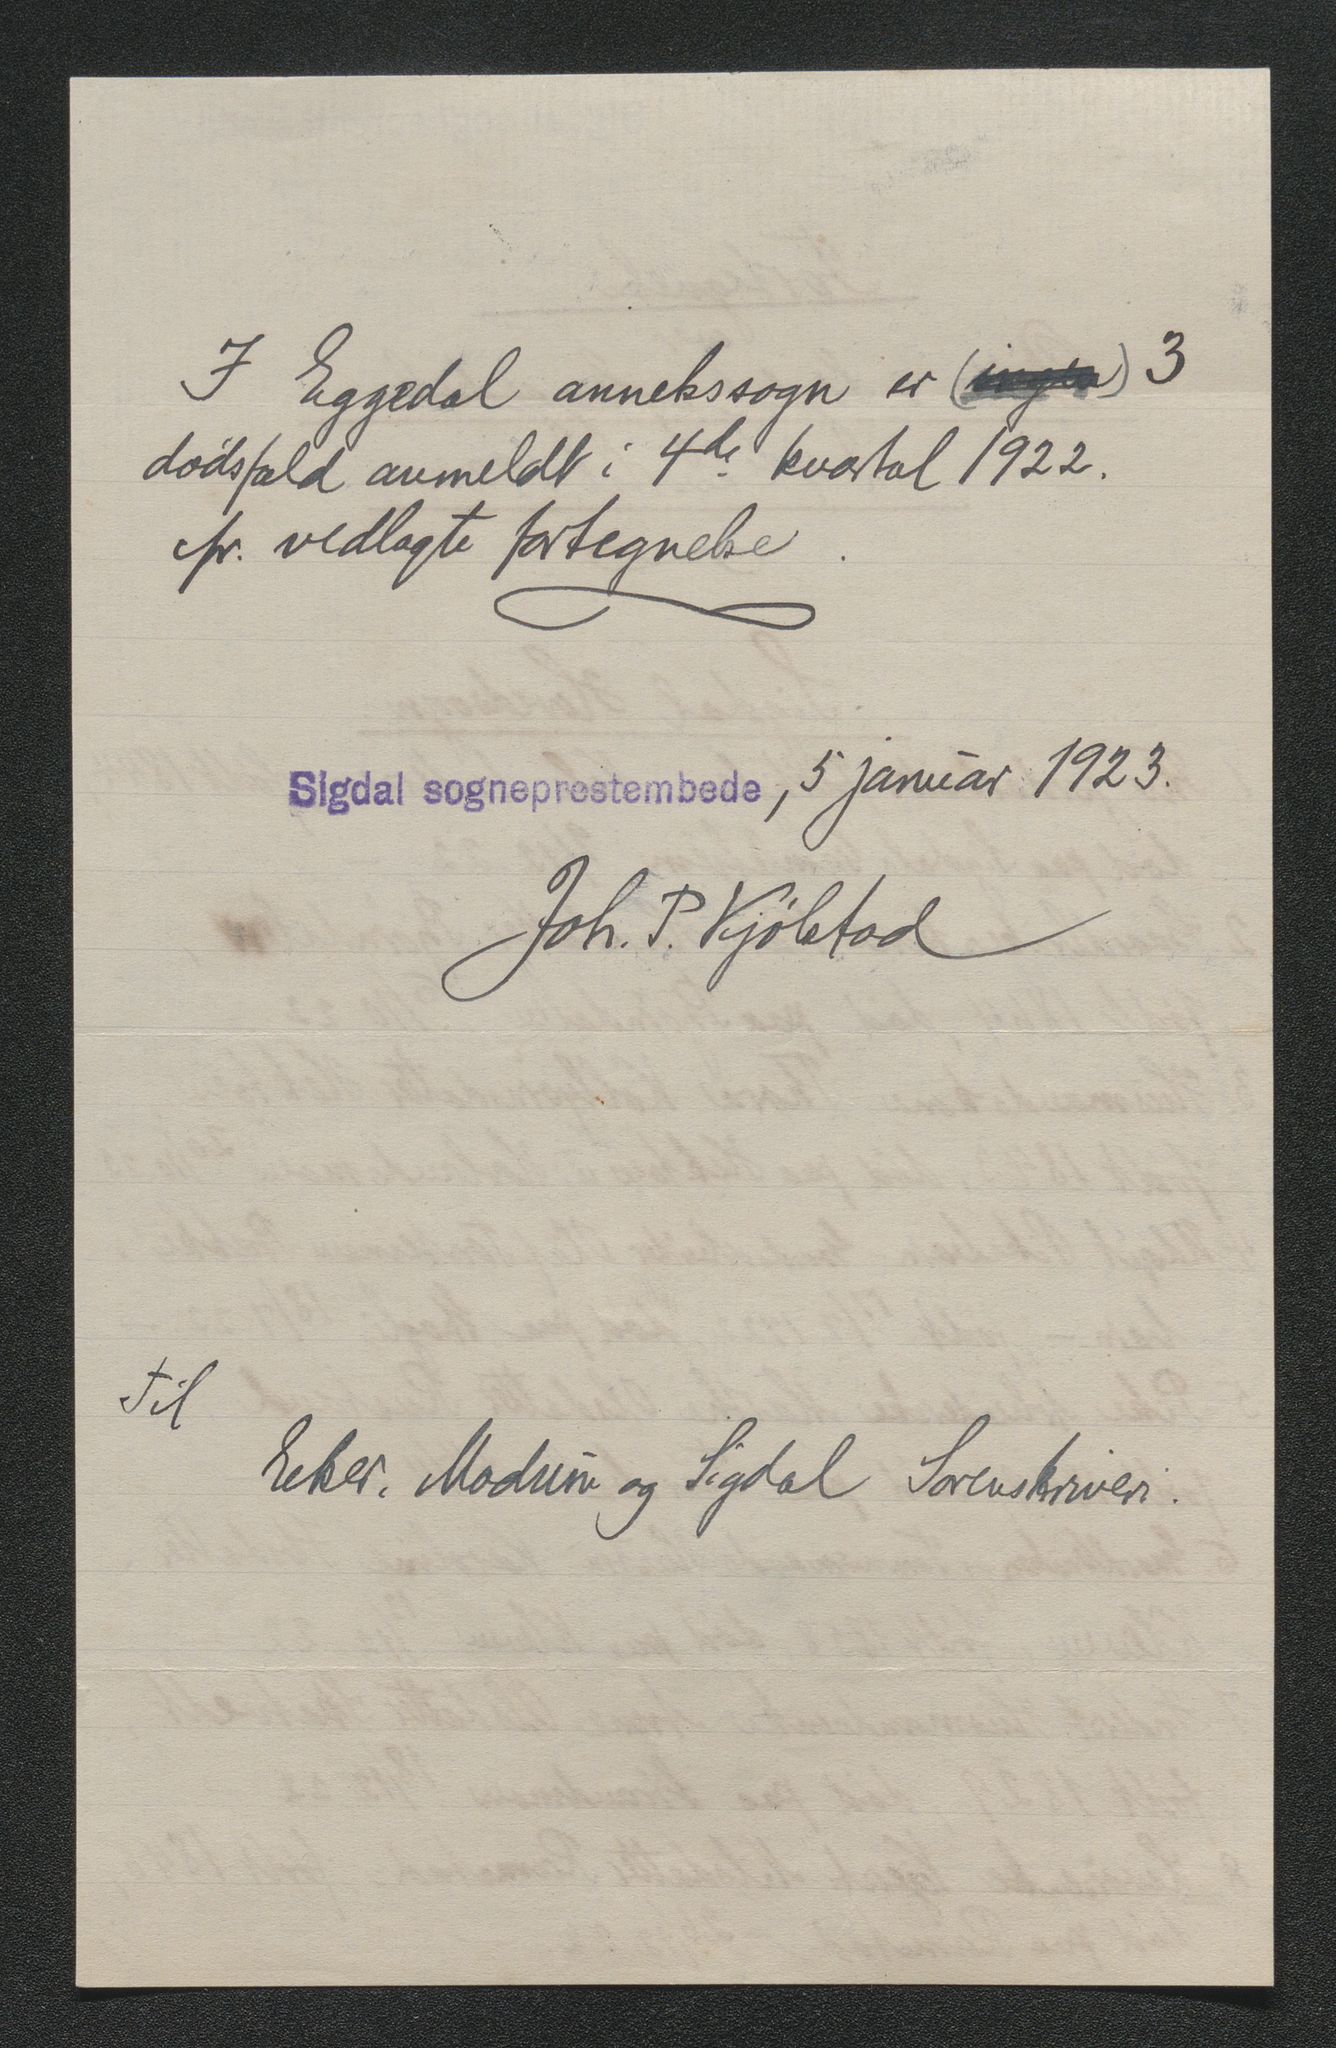 I Eggedal annekssogn er (ingen) 3
dödsfald anmeldt i 4de kvartal 1922.
cfr. vedlagte fortegnelse.
Sigdal sogneprestembede, 5 januar 1923.
Joh. P. Kjölstad
Til
Eker, Modum og Sigdal Sorenskriveri.